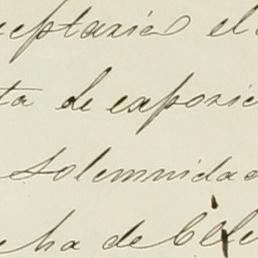 ceptaria el
ta de exposic
solemnidad
cha de Cele